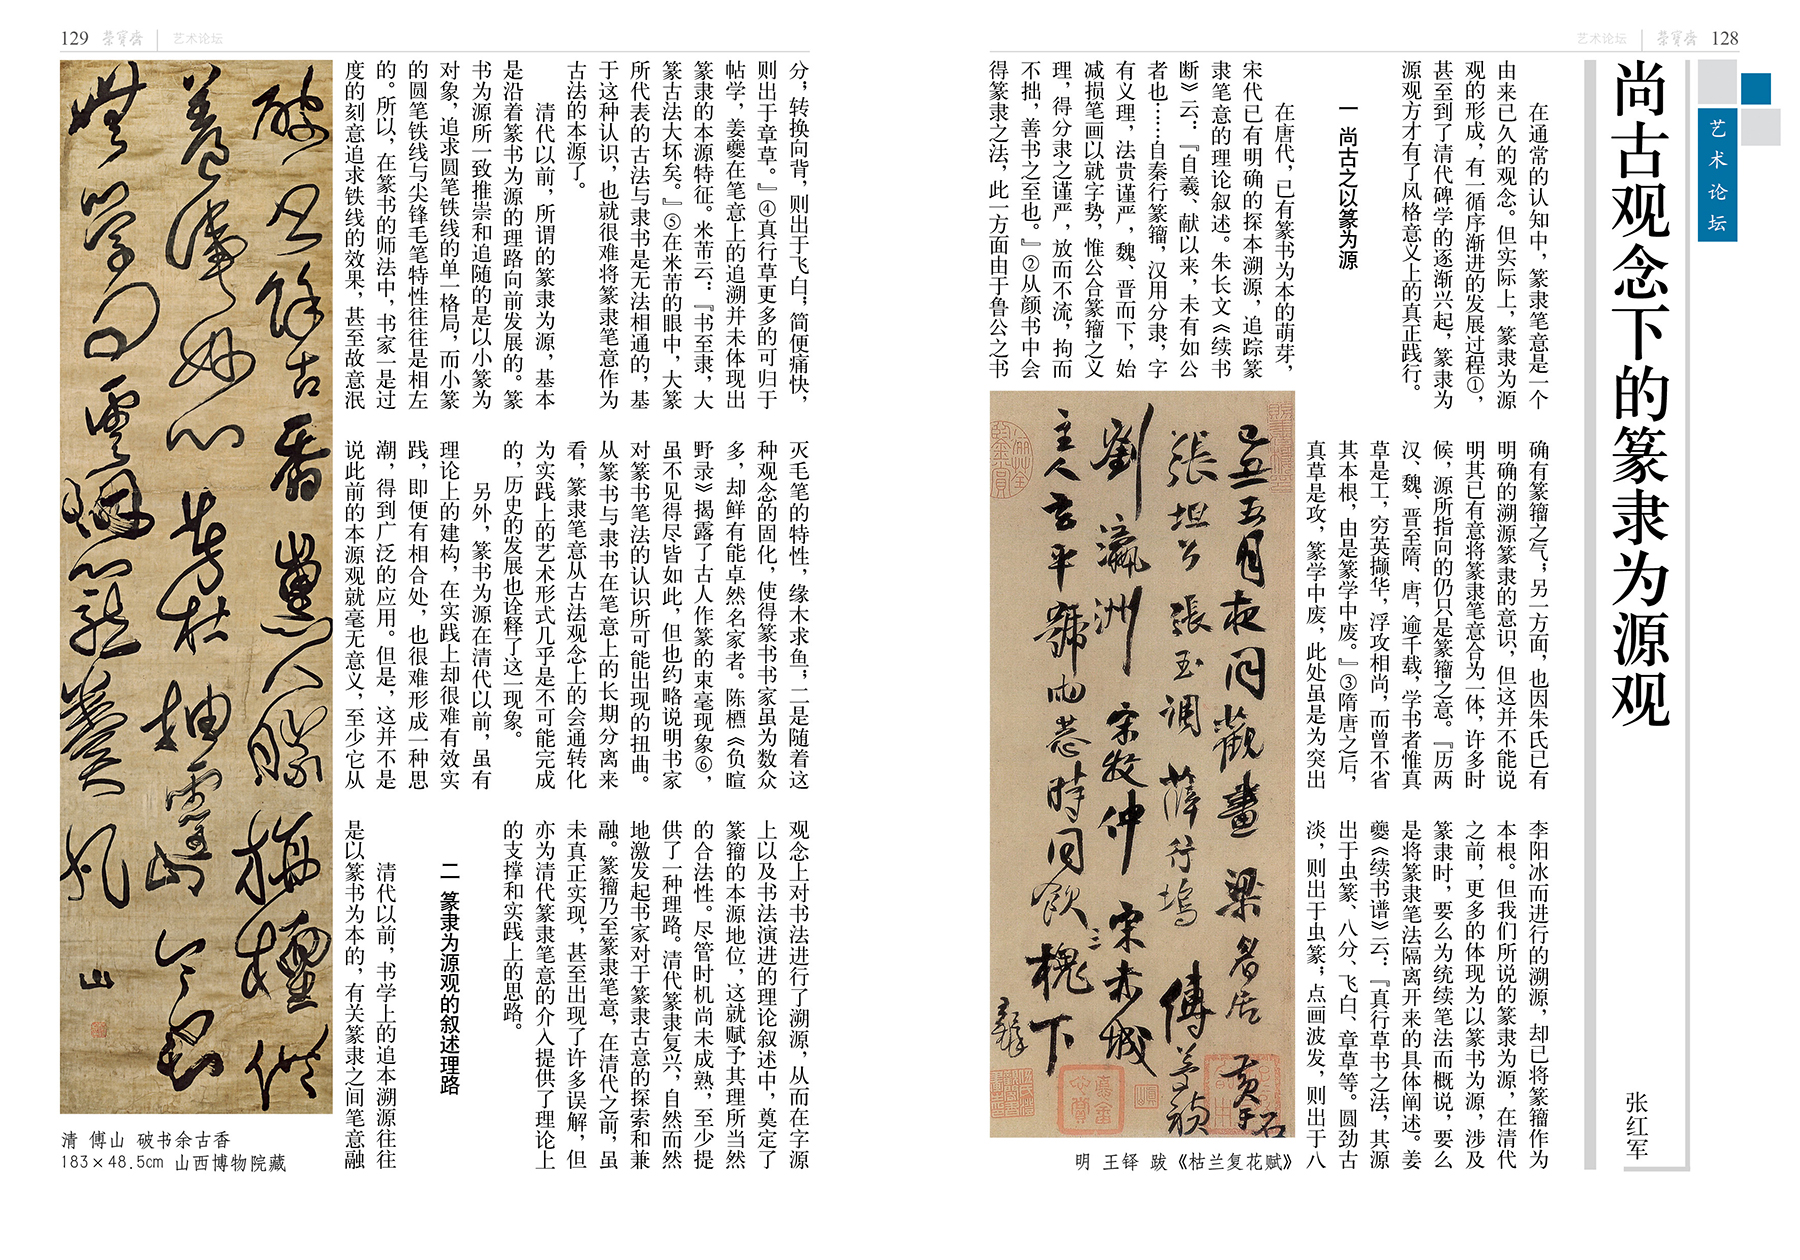 128
荣宝斋
艺术论坛
艺术论坛
尚古观念下的篆隶为源观
张红军
在通常的认知中，篆隶笔意是一个
由来已久的观念。但实际上，篆隶为源
观的形成，有一循序渐进的发展过程①，
甚至到了清代碑学的逐渐兴起，篆隶为
源观方才有了风格意义上的真正践行。
一 尚古之以篆为源
在唐代，已有篆书为本的萌芽，
宋代已有明确的探本溯源，追踪篆
隶笔意的理论叙述。朱长文《续书
断》云：『自羲、献以来，未有如公
者也……自秦行篆籀，汉用分隶，字
有义理，法贵谨严，魏、晋而下，始
减损笔画以就字势，惟公合篆籀之义
理，得分隶之谨严，放而不流，拘而
不拙，善书之至也。』②从颜书中会
得篆隶之法，此一方面由于鲁公之书
确有篆籀之气；另一方面，也因朱氏已有
明确的溯源篆隶的意识，但这并不能说
明其已有意将篆隶笔意合为一体，许多时
候，源所指向的仍只是篆籀之意。『历两
汉、魏、晋至隋、唐，逾千载，学书者惟真
草是工，穷英撷华，浮攻相尚，而曾不省
其本根，由是篆学中废。』③隋唐之后，
真草是攻，篆学中废，此处虽是为突出
李阳冰而进行的溯源，却已将篆籀作为
本根。但我们所说的篆隶为源，在清代
之前，更多的体现为以篆书为源，涉及
篆隶时，要么为统续笔法而概说，要么
是将篆隶笔法隔离开来的具体阐述。姜
夔《续书谱》云：『真行草书之法，其源
出于虫篆、八分、飞白、章草等。圆劲古
淡，则出于虫篆；点画波发，则出于八
己丑五月夜同觀畫 梁眉居 黄石
張坦公 張玉調 薛行塢 傅夢禎
劉瀛洲 宋牧仲 宋赤城
主人玄平號雨蒼時同飲三槐下
明 王铎 跋《枯兰复花赋》
129
荣宝斋
艺术论坛
分，转换向背，则出于飞白；简便痛快，
则出于章草。』④真行草更多的可归于
帖学，姜夔在笔意上的追溯并未体现出
篆隶的本源特征。米芾云：『书至隶，大
篆古法大坏矣。』⑤在米芾的眼中，大篆
所代表的古法与隶书是无法相通的，基
于这种认识，也就很难将篆隶笔意作为
古法的本源了。
清代以前，所谓的篆隶为源，基本
是沿着篆书为源的理路向前发展的。篆
书为源所一致推崇和追随的是以小篆为
对象，追求圆笔铁线的单一格局，而小篆
的圆笔铁线与尖锋毛笔特性往往是相左
的。所以，在篆书的师法中，书家一是过
度的刻意追求铁线的效果，甚至故意泯
灭毛笔的特性，缘木求鱼；二是随着这
种观念的固化，使得篆书书家虽为数众
多，却鲜有能卓然名家者。陈槱《负暄
野录》揭露了古人作篆的束毫现象⑥，
虽不见得尽皆如此，但也约略说明书家
对篆书笔法的认识所可能出现的扭曲。
从篆书与隶书在笔意上的长期分离来
看，篆隶笔意从古法观念上的会通转化
为实践上的艺术形式几乎是不可能完成
的，历史的发展也诠释了这一现象。
另外，篆书为源在清代以前，虽有
理论上的建构，在实践上却很难有效实
践，即便有相合处，也很难形成一种思
潮，得到广泛的应用。但是，这并不是
说此前的本源观就毫无意义，至少它从
观念上对书法进行了溯源，从而在字源
上以及书法演进的理论叙述中，奠定了
篆籀的本源地位，这就赋予其理所当然
的合法性。尽管时机尚未成熟，至少提
供了一种理路。清代篆隶复兴，自然而然
地激发起书家对于篆隶古意的探索和兼
融。篆籀乃至篆隶笔意，在清代之前，虽
未真正实现，甚至出现了许多误解，但
亦为清代篆隶笔意的介入提供了理论上
的支撑和实践上的思路。
二 篆隶为源观的叙述理路
清代以前，书学上的追本溯源往往
是以篆书为本的，有关篆隶之间笔意融
清 傅山 破书余古香
183×48.5cm 山西博物院藏